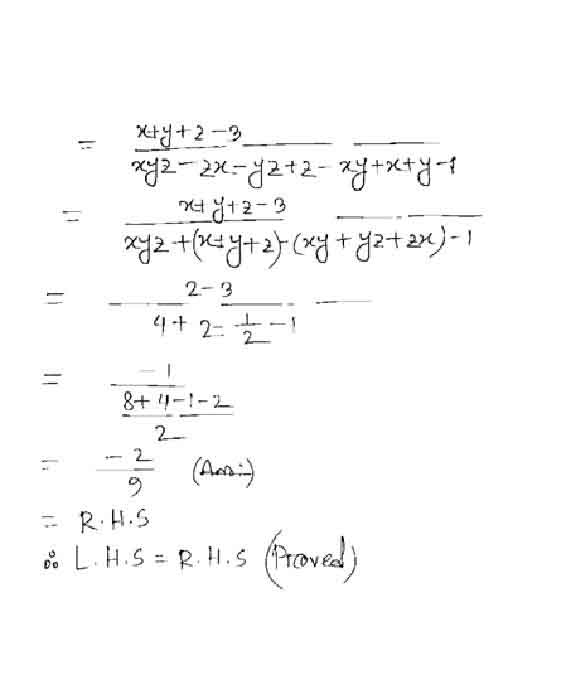 = x+y+z-3
xyz-zx-yz+z-xy+x+y-1
= x+y+z-3
xyz+(x+y+z)-(xy+yz+zx)-1
= 2-3
4+2-1/2-1
= -1
8+4-1-2
2
= -2
9 (Ans:)
= R.H.S
∴ L.H.S = R.H.S (Proved)